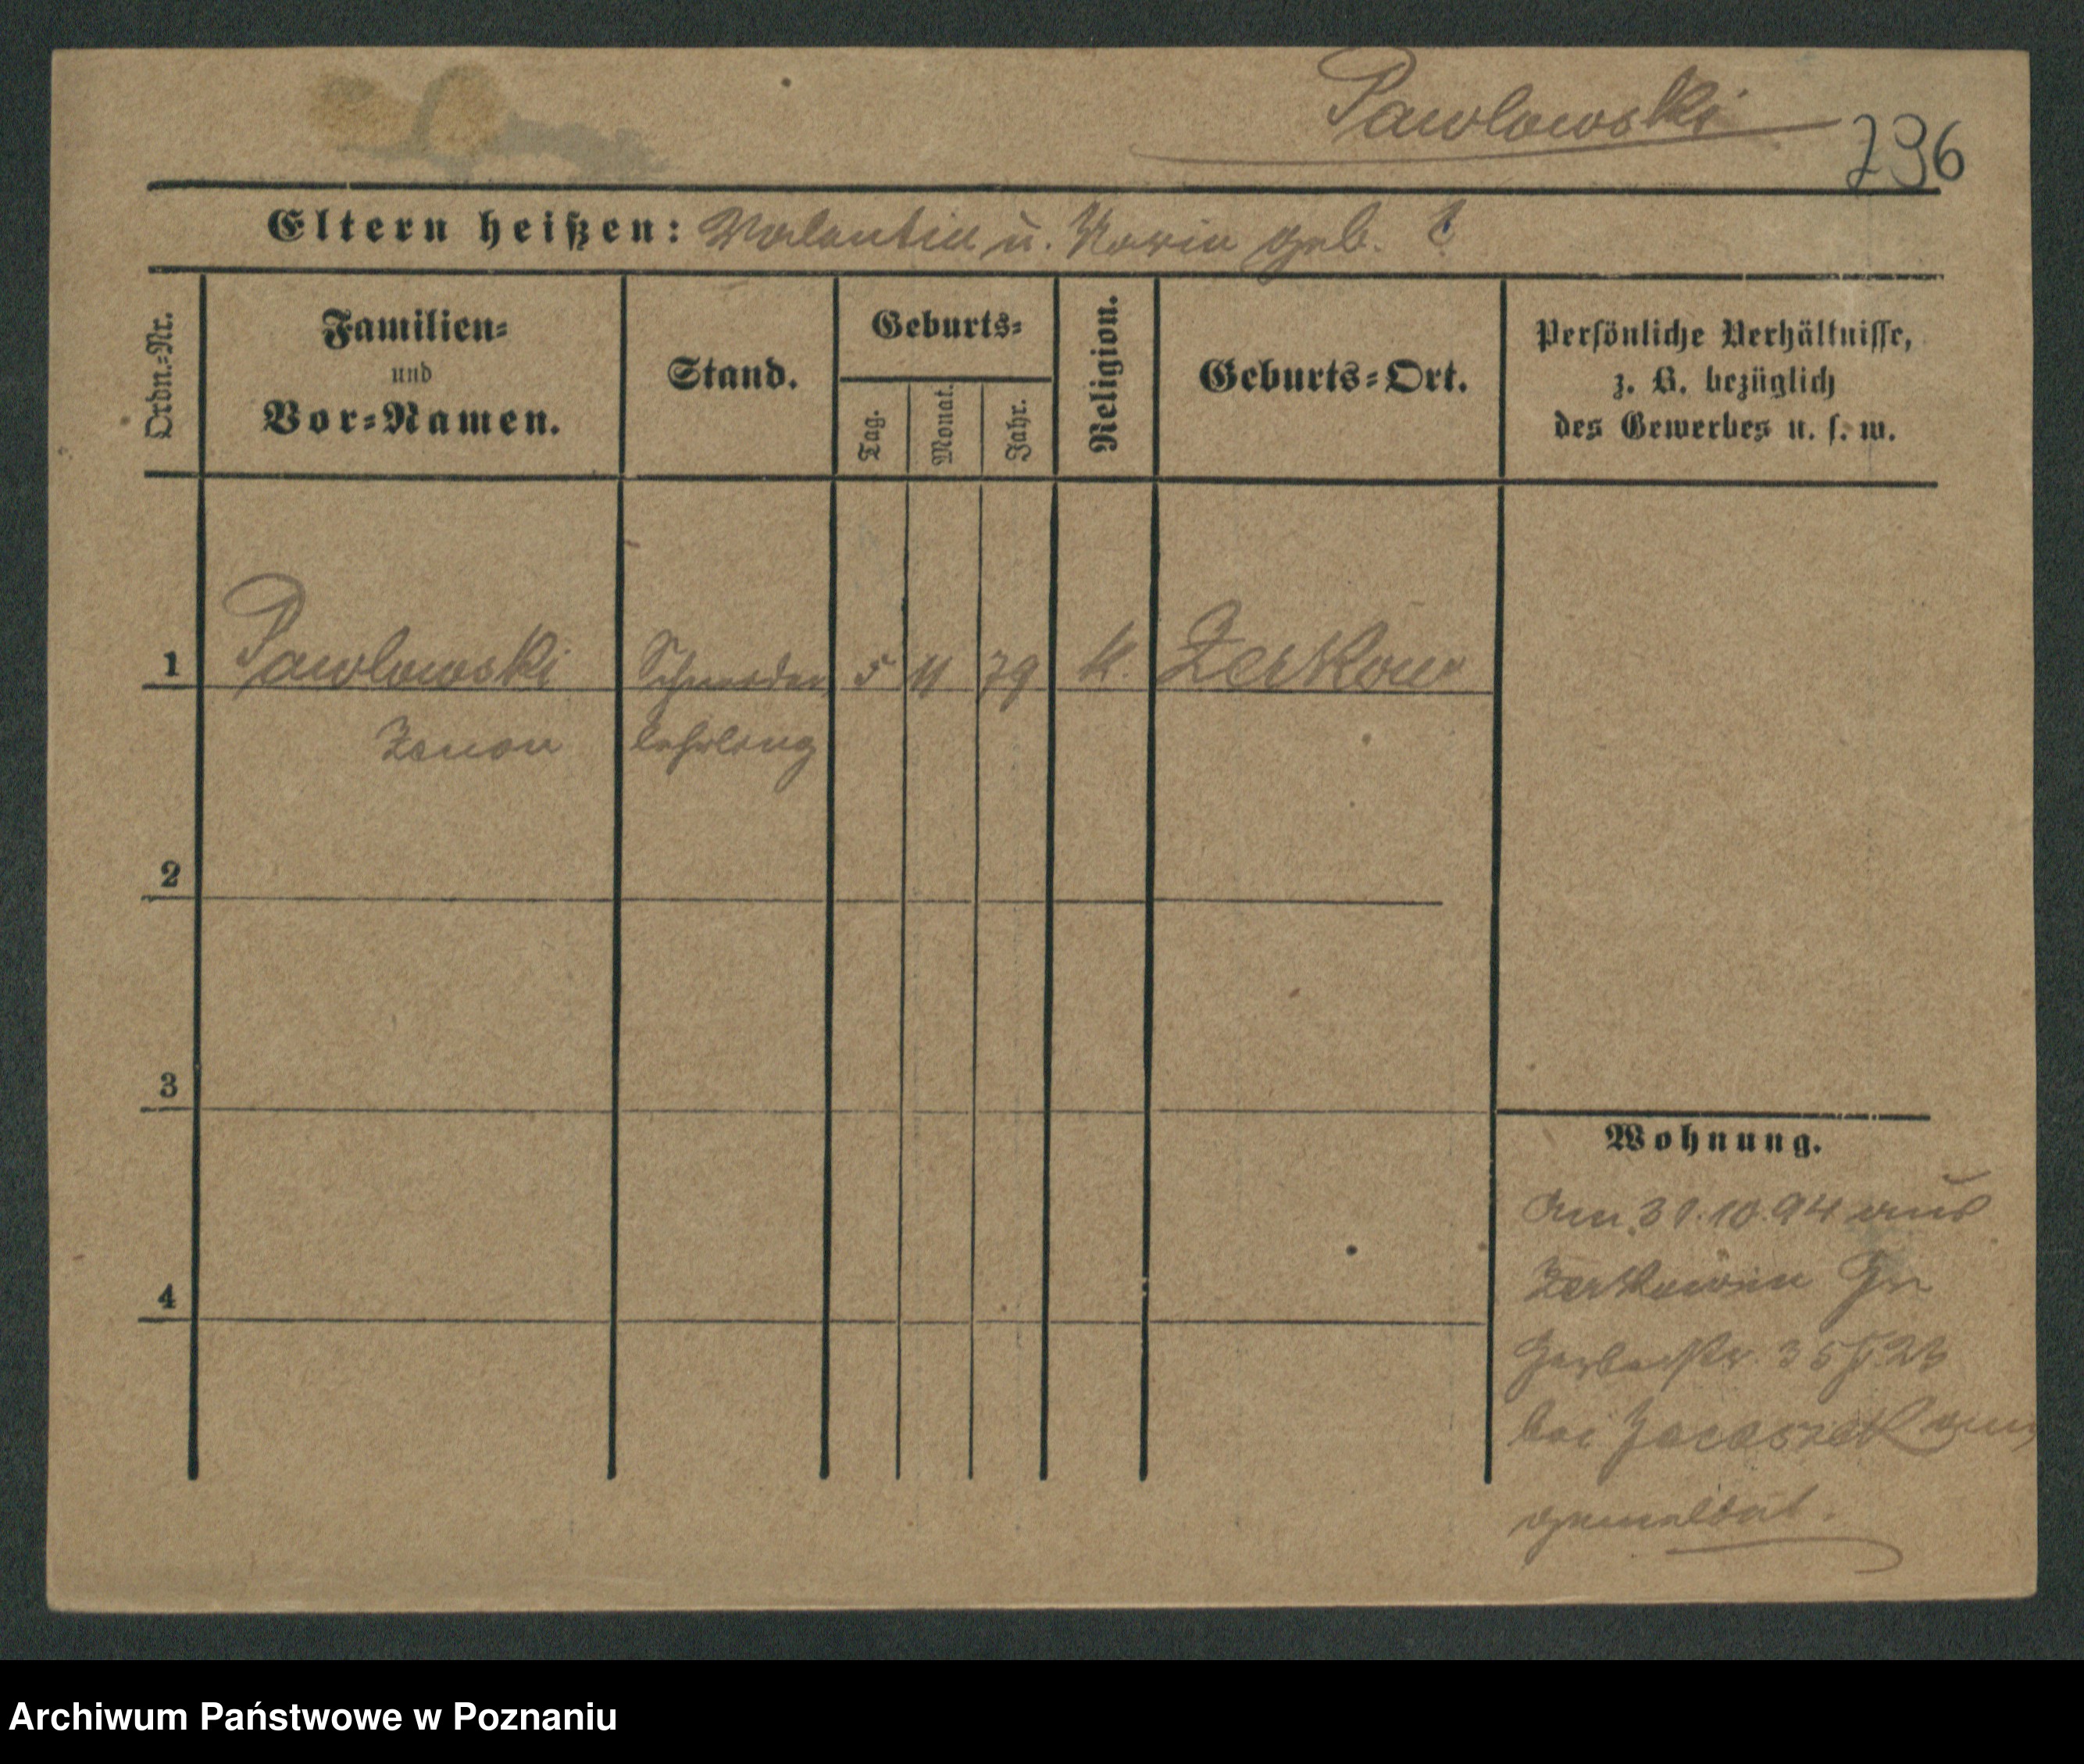 Pawlowski
796
Eltern heißen: Valentin u. Maria geb. ?
Ordn.=Nr.
Familien=
und
Vor=Namen.
Stand.
Geburts=
Tag.
Monat.
Jahr.
Religion.
Geburts=Ort.
Persönliche Verhältnisse,
z. B. bezüglich
des Gewerbes u. s. w.
1 Pawlowski Schneider 5 11 79 k. Zerkow
Zenon lehrling
2
3
4
Wohnung.
Am 31.10.94 aus
Zerkow Gr
Gerberstr. 35
bei Jaraszek an
gemeldet.
Archiwum Państwowe w Poznaniu